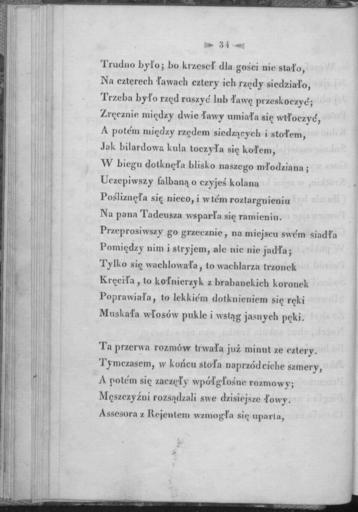 34
Trudno było; bo krzeseł dla gości nie stało,
Na czterech ławach cztery ich rzędy siedziało,
Trzeba było rzęd ruszyć lub ławę przeskoczyć;
Zręcznie między dwie ławy umiała się wtłoczyć,
A potém między rzędem siedzących i stołem,
Jak bilardowa kula toczyła się kołem,
W biegu dotknęła blisko naszego młodziana;
Uczepiwszy falbaną o czyjeś kolana
Pośliznęła się nieco, i w tém roztargnieniu
Na pana Tadeusza wsparła się ramieniu.
Przeprosiwszy go grzecznie, na miejscu swém siadła
Pomiędzy nim i stryjem, ale nic nie jadła;
Tylko się wachlowała, to wachlarza trzonek
Kręciła, to kołnierzyk z brabanckich koronek
Poprawiała, to lekkiém dotknieniem się ręki
Muskała włosów pukle i wstąg jasnych pęki.
Ta przerwa rozmów trwała już minut ze cztery.
Tymczasem, w końcu stoła naprzód ciche szmery,
A potém się zaczęły wpółgłośne rozmowy;
Męszczyźni rozsądzali swe dzisiejsze łowy.
Assesora z Rejentem wzmogła się uparta,